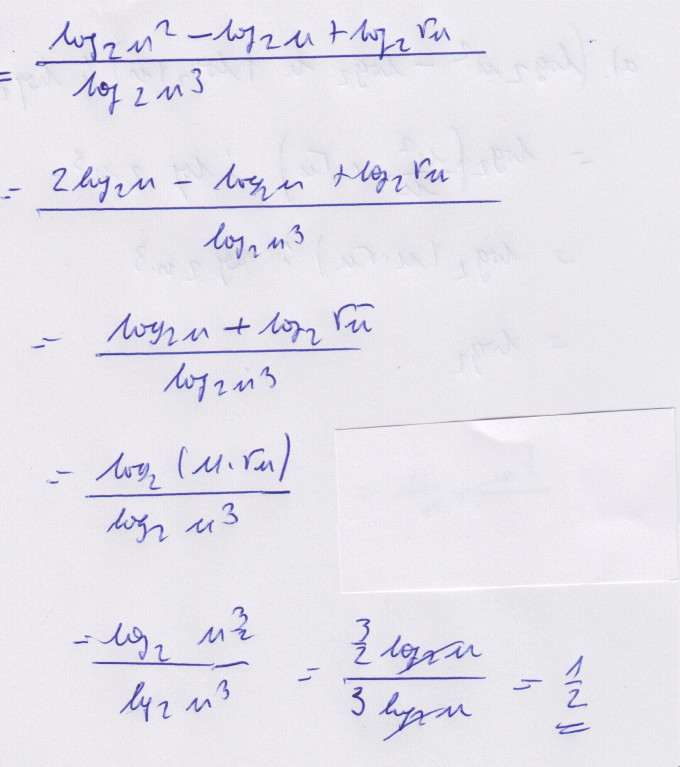 = (log₂ u² − log₂ u + log₂ √u) / (log₂ u³)
= (2 log₂ u − log₂ u + log₂ √u) / (log₂ u³)
= (log₂ u + log₂ √u) / (log₂ u³)
= (log₂ (u·√u)) / (log₂ u³)
= (log₂ u^(3/2)) / (lg₂ u³) = (3/2 log₂ u) / (3 log₂ u) = 1/2